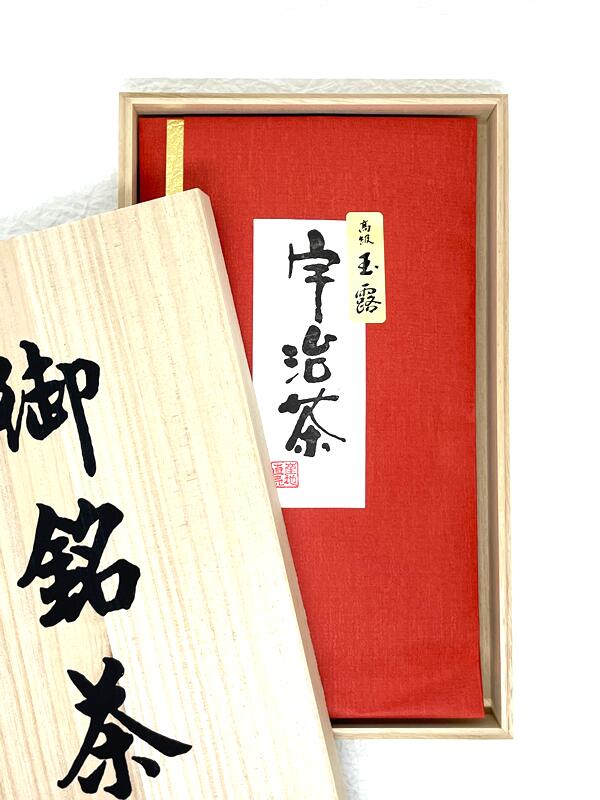 宇治茶
高級 玉露
産地直売
御銘茶